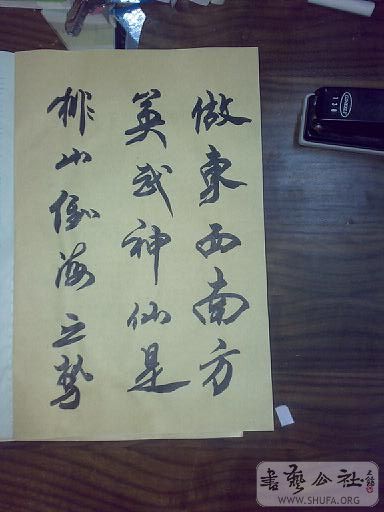 做東西南方
英武神仙是
排山倒海之势
書藝公社
WWW.SHUFA.ORG